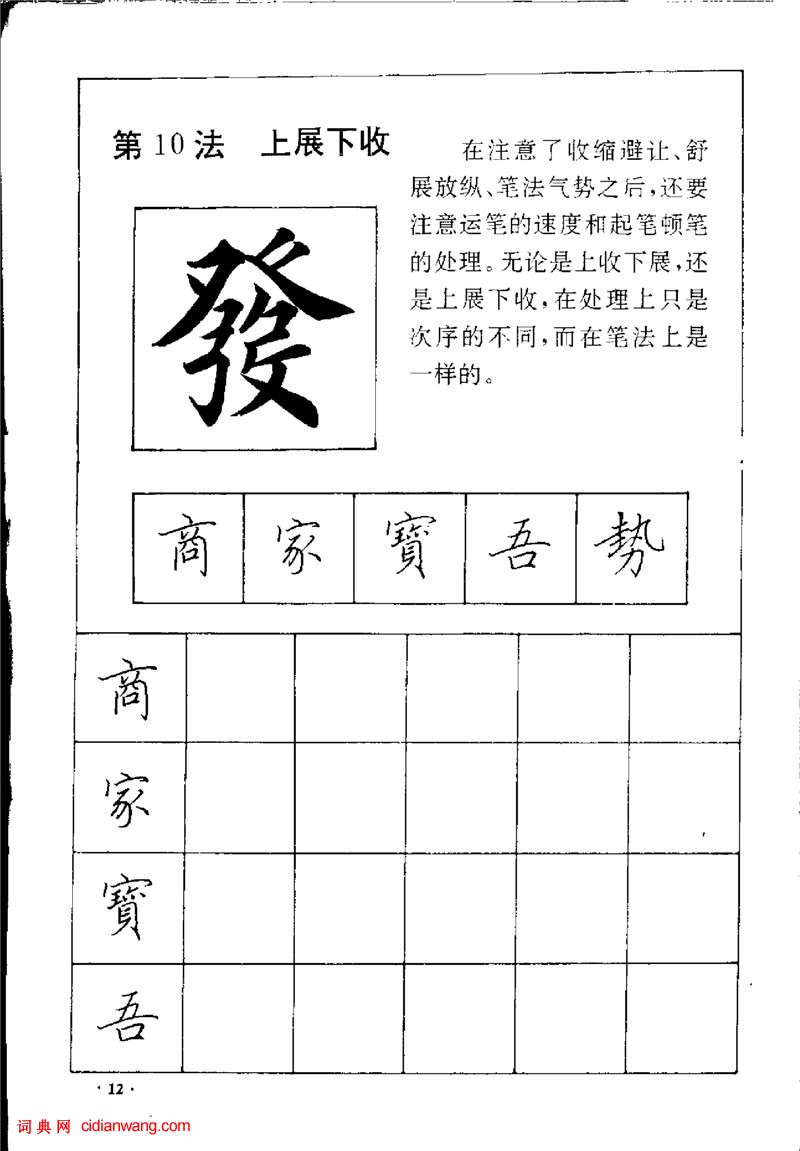 第10法 上展下收
在注意了收缩避让、舒
展放纵、笔法气势之后，还要
注意运笔的速度和起笔顿笔
的处理。无论是上收下展，还
是上展下收，在处理上只是
次序的不同，而在笔法上是
一样的。
發
商 家 寶 吾 勢
商
家
寶
吾
·12·
词典网 cidianwang.com